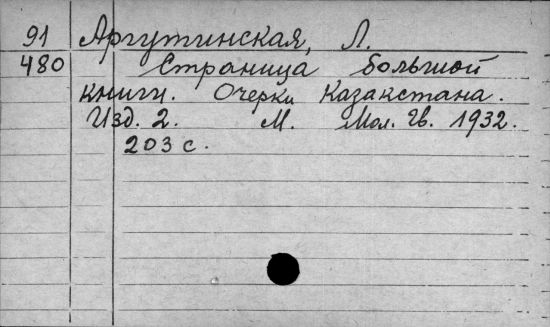 91 Аргутинская, Л.
480 Страница большой
книги. Очерки Казакстана.
Изд. 2. М. Мол. Гв. 1932.
203 с.